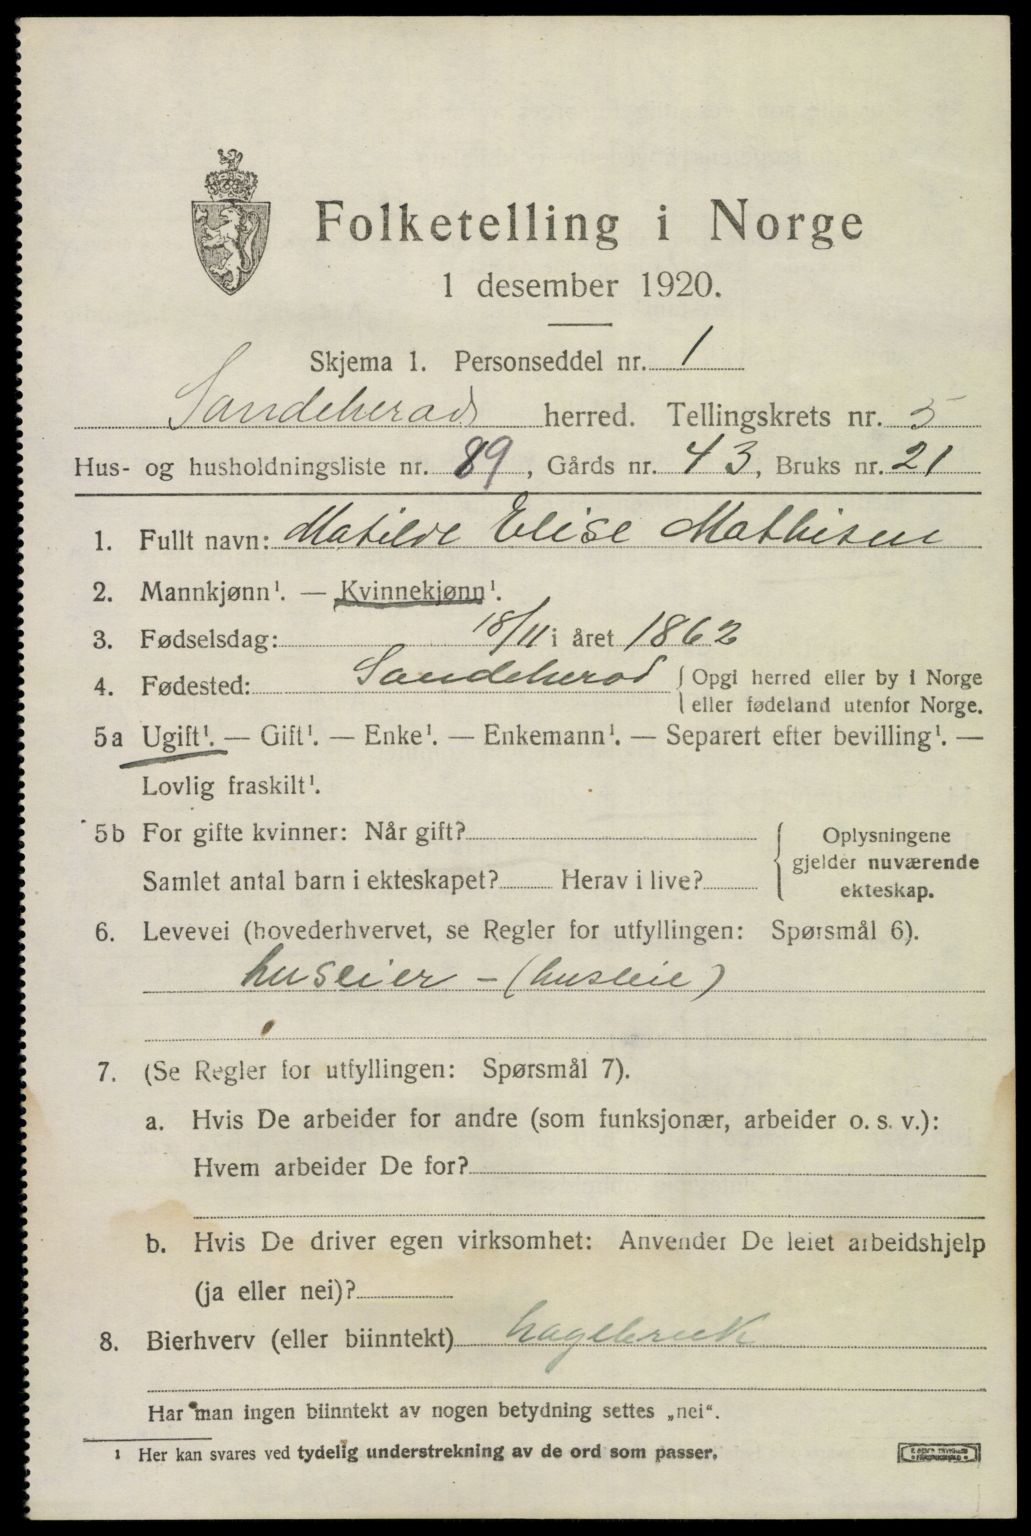 Folketelling i Norge
1 desember 1920.
Skjema 1. Personseddel nr. 1
Sandeherad herred. Tellingskrets nr. 5
Hus- og husholdningsliste nr. 89, Gårds nr. 43, Bruks nr. 21
1. Fullt navn: Matilde Elise Mathisen
2. Mannkjønn¹. — Kvinnekjønn¹.
3. Fødselsdag: 18/11 i året 1862
4. Fødested: Sandeherad { Opgi herred eller by i Norge
eller fødeland utenfor Norge.
5a Ugift¹. — Gift¹. — Enke¹. — Enkemann¹. — Separert efter bevilling¹. —
Lovlig fraskilt¹.
5b For gifte kvinner: Når gift? { Oplysningene
gjelder nuværende
Samlet antal barn i ekteskapet? Herav i live? ekteskap.
6. Levevei (hovederhvervet, se Regler for utfyllingen: Spørsmål 6).
huseier – (husleie)
7. (Se Regler for utfyllingen: Spørsmål 7).
a. Hvis De arbeider for andre (som funksjonær, arbeider o. s. v.):
Hvem arbeider De for?
b. Hvis De driver egen virksomhet: Anvender De leiet arbeidshjelp
(ja eller nei)?
8. Bierhverv (eller biinntekt) hagebruk
Har man ingen biinntekt av nogen betydning settes „nei".
¹ Her kan svares ved tydelig understrekning av de ord som passer.